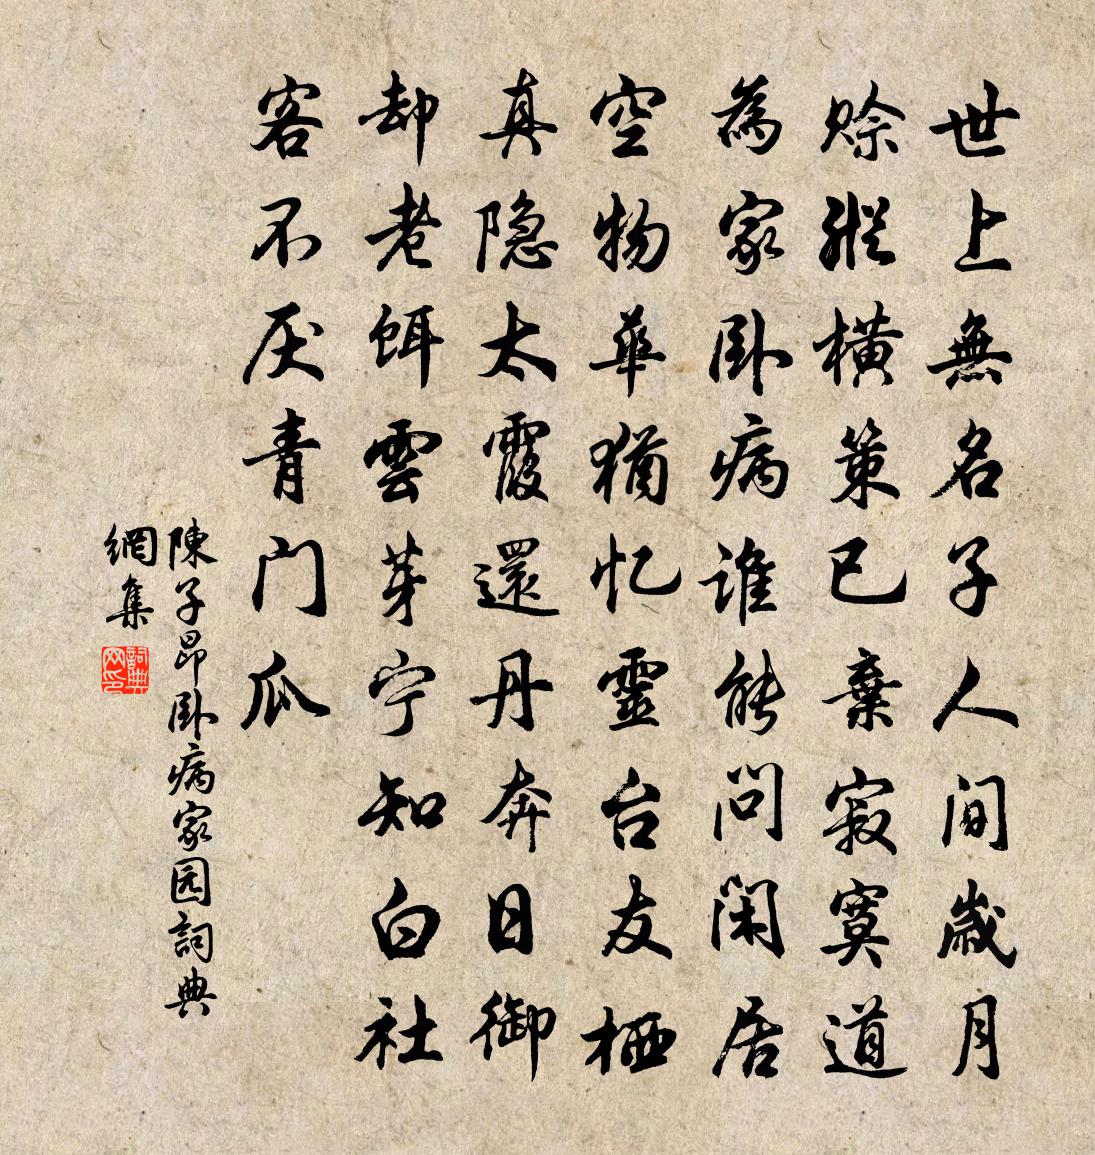 世上無名子人间歲月
赊縱横策已棄寂寞道
為家卧病谁能问闲居
空物華猶忆靈台友栖
真隐太霞還丹奔日御
却老饵雲芽宁知白社
客不厌青门瓜
陳子昂卧病家园詞典
網集
詞典网印